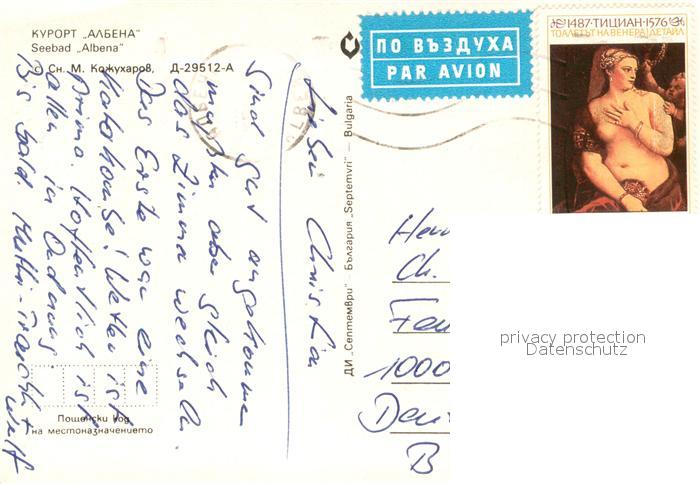 КУРОРТ „АЛБЕНА"
Seebad „Albena"
© Сн. М. Кожухаров, Д-29512-А
ПО ВЪЗДУХА
PAR AVION
1487·ТИЦИАН·1576
ТОАЛЕТЪТ НА ВЕНЕРА/ДЕТАЙЛ
Lieber Christian
Sind gut angekommen
mußten aber gleich
das Zimmer wechseln.
Das Erste war eine
Katastrophe! Wetter ist
prima. Hoffentlich ist
allen in Ordnung
Bis bald. Mutti
ДИ „Септември" — България „Septemvri" — Bulgaria
Ch.
1000
B
Пощенски код
на местоназначението
privacy protection
Datenschutz